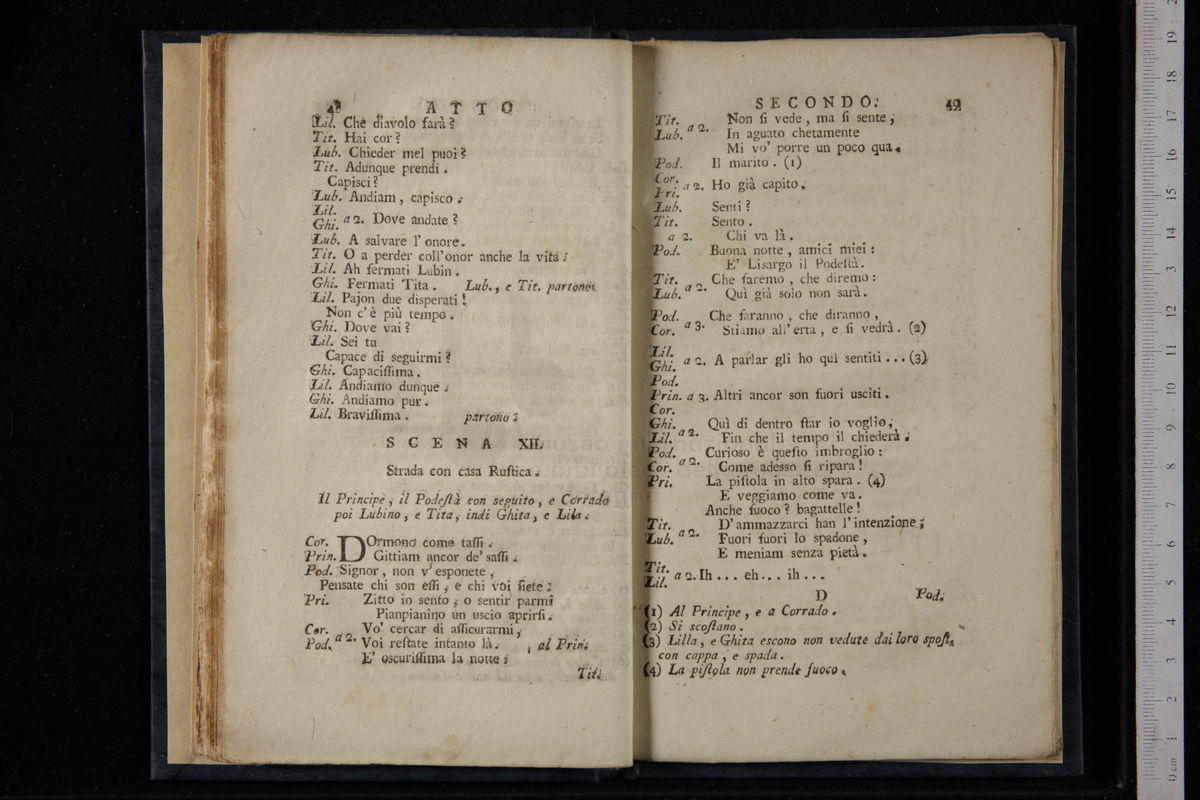 48 ATTO
Lil. Che diavolo farà?
Tit. Hai cor?
Lub. Chieder mel puoi?
Tit. Adunque prendi.
Capisci?
Lub. Andiam, capisco.
Lil.
Ghi. a 2. Dove andate?
Lub. A salvare l'onore.
Tit. O a perder coll'onor anche la vita.
Lil. Ah fermati Lubin.
Ghi. Fermati Tita. Lub., e Tit. partono.
Lil. Pajon due disperati!
Non c'è più tempo.
Ghi. Dove vai?
Lil. Sei tu
Capace di seguirmi?
Ghi. Capacissima.
Lil. Andiamo dunque.
Ghi. Andiamo pur.
Lil. Bravissima. partono.
SCENA XII.
Strada con casa Rustica.
Il Principe, il Podestà con seguito, e Corrado
poi Lubino, e Tita, indi Ghita, e Lila.
Cor. DOrmono come tassi.
Prin. Gittiam ancor de' sassi.
Pod. Signor, non v'esponete,
Pensate chi son essi, e chi voi siete:
Pri. Zitto io sento, o sentir parmi
Pianpianino un uscio aprirsi.
Cor. Vo' cercar di assicurarmi,
Pod. a 2. Voi restate intanto là. al Prin.
E' oscurissima la notte;
Tit.
SECONDO. 49
Tit. Non si vede, ma si sente,
Lub. a 2. In aguato chetamente
Mi vo' porre un poco qua.
Pod. Il marito. (1)
Cor.
Pri. a 2. Ho già capito.
Lub. Senti?
Tit. Sento.
a 2. Chi va là.
Pod. Buona notte, amici miei:
E' Lisargo il Podestà.
Tit. Che faremo, che diremo:
Lub. a 2. Quì già solo non sarà.
Pod. Che faranno, che diranno,
Cor. a 3. Stiamo all'erta, e si vedrà. (2)
Lil.
Ghi. a 2. A parlar gli ho quì sentiti... (3)
Pod.
Prin. a 3. Altri ancor son fuori usciti.
Cor.
Ghi. Quì di dentro star io voglio,
Lil. a 2. Fin che il tempo il chiederà.
Pod. Curioso è questo imbroglio:
Cor. a 2. Come adesso si ripara!
Pri. La pistola in alto spara. (4)
E veggiamo come va.
Anche fuoco? bagattelle!
Tit. D'ammazzarci han l'intenzione;
Lub. a 2. Fuori fuori lo spadone,
E meniam senza pietà.
Tit.
Lil. a 2. Ih... eh... ih...
D Pod.
(1) Al Principe, e a Corrado.
(2) Si scostano.
(3) Lilla, e Ghita escono non vedute dai loro sposi,
con cappa, e spada.
(4) La pistola non prende fuoco.